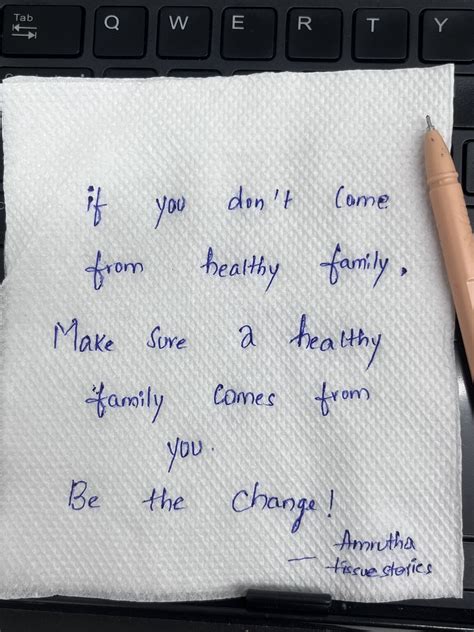 Tab Q W E R T Y
if you don't come
from healthy family.
Make sure a healthy
family comes from
you.
Be the change!
— Amrutha
tissuestories